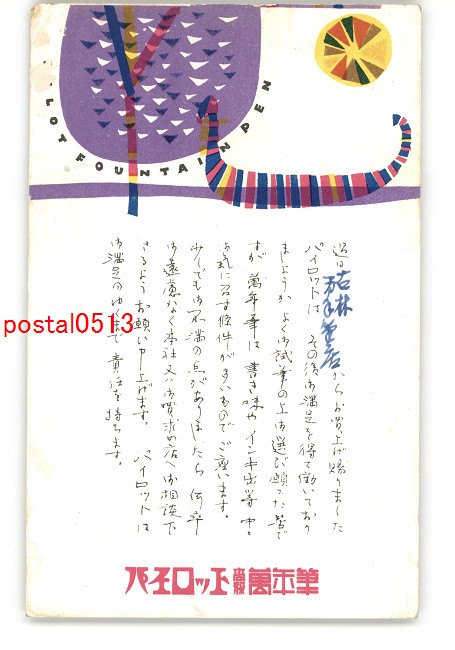 PILOT FOUNTAIN PEN
過日古林万年筆店からお買上げ賜りました
パイロットは その後御満足を得て働いており
ましょうか よく御試筆の上御選び願った筈で
すが 萬年筆は 書き味や インキ出等 中々
お気に召す條件が多いもので ございます。
少しでも御不満の点がありましたら 何卒
御遠慮なく本社又はお買求め店へ御相談下
さるよう お願い申上げます。 パイロットは
御満足のゆくまで 責任を持ちます。
パイロット高級萬年筆
postal0513